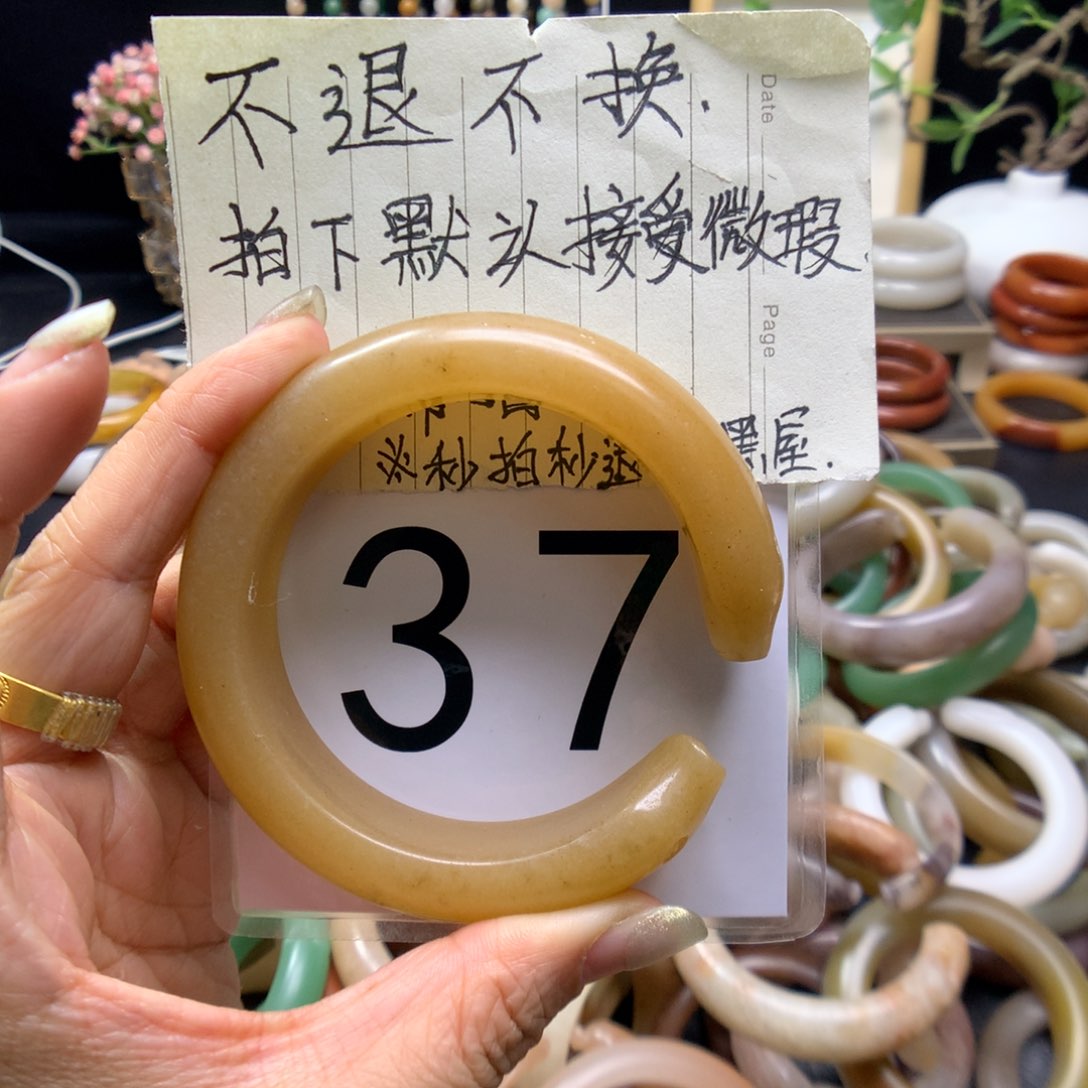 不退不换.
拍下默认接受微瑕.
※秒拍秒退 黑屋.
37
Date
Page